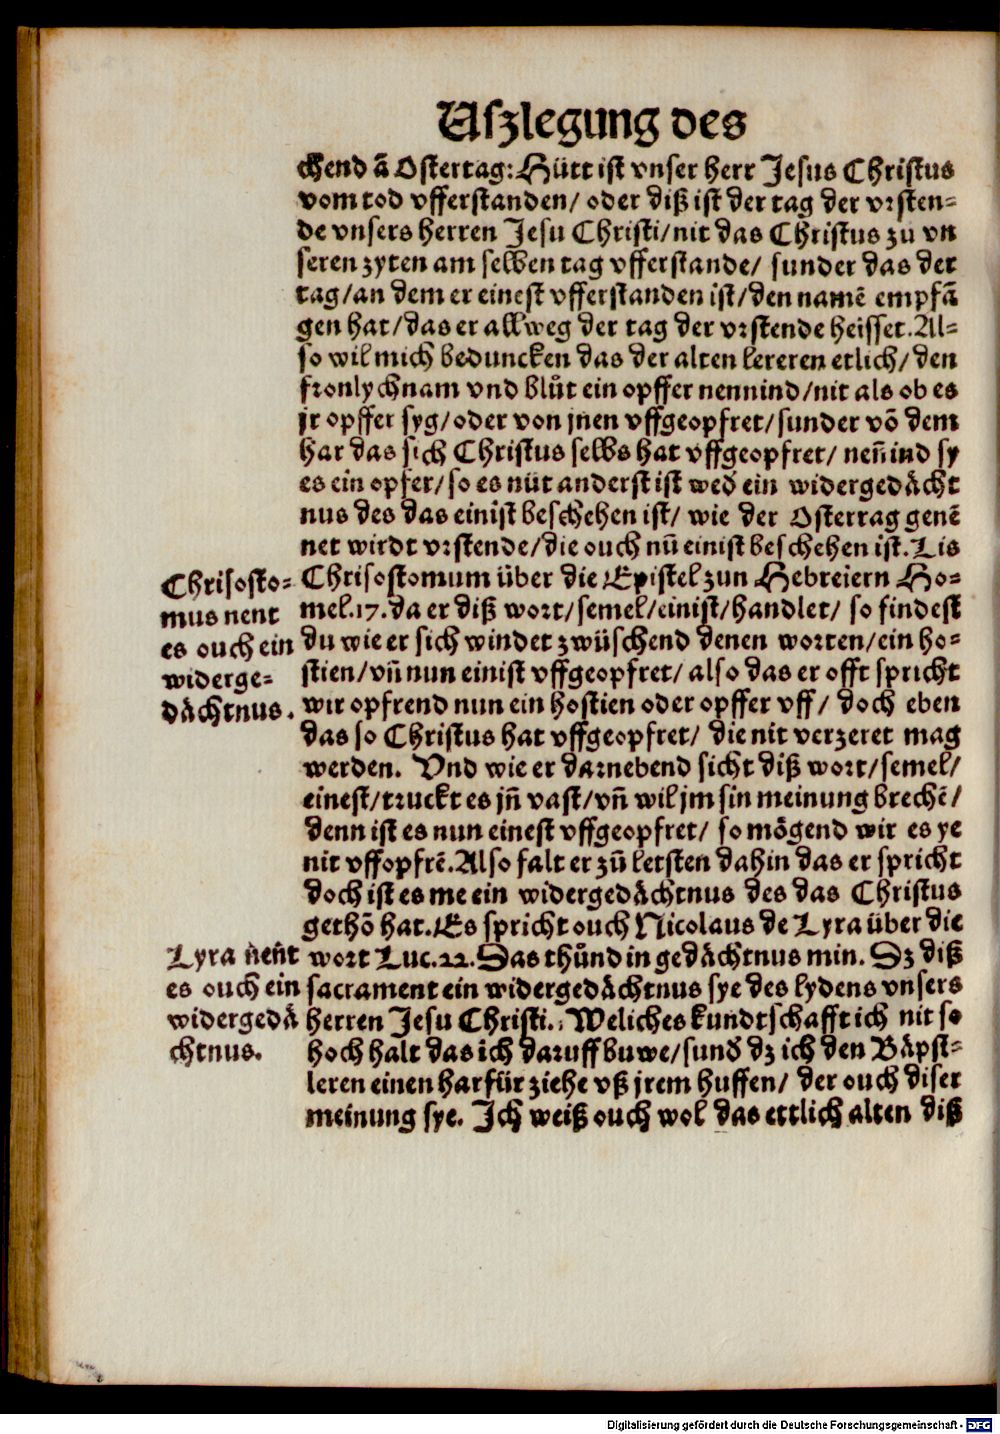 Uſzlegung des
chend ā Oſtertag: Hütt iſt vnſer herr Jeſus Chriſtus
vom tod vfferſtanden/ oder diß iſt der tag der vrſten-
de vnſers herren Jeſu Chriſti/ nit das Chriſtus zů vn
ſeren zyten am ſelben tag vfferſtande/ ſunder das der
tag/ an dem er eineſt vfferſtanden iſt/ den namē empfā
gen hat/ das er allweg der tag der vrſtende heiſſet. Al-
ſo wil mich beduncken das der alten lereren etlich/ den
fronlychnam vnd blůt ein opffer nennind/ nit als ob es
jr opffer ſyg/ oder von jnen vffgeopfret/ ſunder vō dem
har das ſich Chriſtus ſelbs hat vffgeopfret/ neñind ſy
es ein opfer/ ſo es nüt anderſt iſt wed̄ ein widergedächt
nus des das einiſt beſchehen iſt/ wie der Oſtertag genē
net wirdt vrſtende/ die ouch nū einiſt beſchehen iſt. Lis
Chriſoſtomum über die Epiſtel zun Hebreiern Ho-
mel. 17. da er diß wort/ ſemel/ einiſt/ handlet/ ſo findeſt
du wie er ſich windet zwüſchend denen worten/ ein ho-
ſtien/ vñ nun einiſt vffgeopfret/ alſo das er offt ſpricht
wir opfrend nun ein hoſtien oder opffer vff/ doch eben
das ſo Chriſtus hat vffgeopfret/ die nit verzeret mag
werden. Vnd wie er darnebend ſicht diß wort/ ſemel/
eineſt/ truckt es jñ vaſt/ vñ wil jm ſin meinung brechē/
denn iſt es nun eineſt vffgeopfret/ ſo mögend wir es ye
nit vffopfrē. Alſo falt er zū letſten dahin das er ſpricht
doch iſt es me ein widergedächtnus des das Chriſtus
gethō hat. Es ſpricht ouch Nicolaus de Lyra über die
wort Luc. 22. Das thůnd in gedächtnus min. Dz diß
ſacrament ein widergedächtnus ſye des lydens vnſers
herren Jeſu Chriſti. Weliches kundtſchafft ich nit ſo
hoch halt das ich daruff buwe/ ſund̄ dz ich den Bäpſt-
leren einen harfür ziehe vß jrem huffen/ der ouch diſer
meinung ſye. Ich weiß ouch wol das ettlich alten diß
Chriſoſto-
mus nent
es ouch ein
widerge-
dächtnus.
Lyra neñt
es ouch ein
widergedä
chtnus.
Digitalisierung gefördert durch die Deutsche Forschungsgemeinschaft - DFG